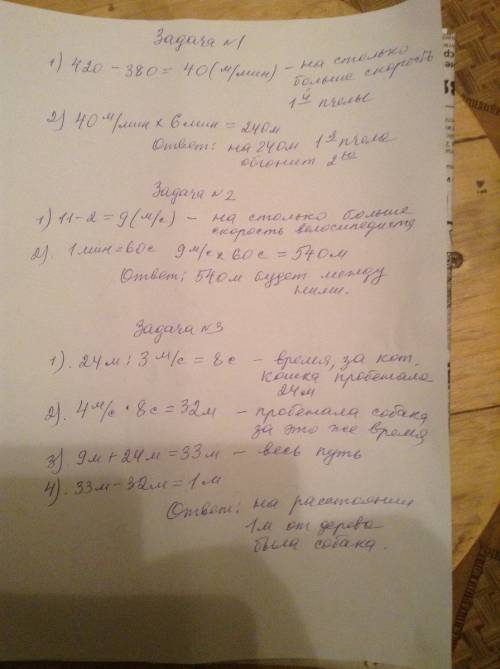 Задача №1
1) 420 – 380 = 40 (м/мин) – на столько
больше скорость
1й пчелы
2) 40 м/мин х 6 мин = 240м
Ответ: на 240м 1я пчела
обгонит 2ую
Задача №2
1) 11 – 2 = 9 (м/с) – на столько больше
скорость велосипедиста
2). 1 мин = 60с 9 м/с х 60с = 540м
Ответ: 540м будет между
ними.
Задача №3
1). 24м : 3 м/с = 8с – время, за кот.
кошка пробежала
24м
2). 4 м/с · 8с = 32м – пробежала собака
за это же время
3) 9м + 24м = 33м – весь путь
4). 33м – 32м = 1м
Ответ: на расстоянии
1м от дерева
была собака.